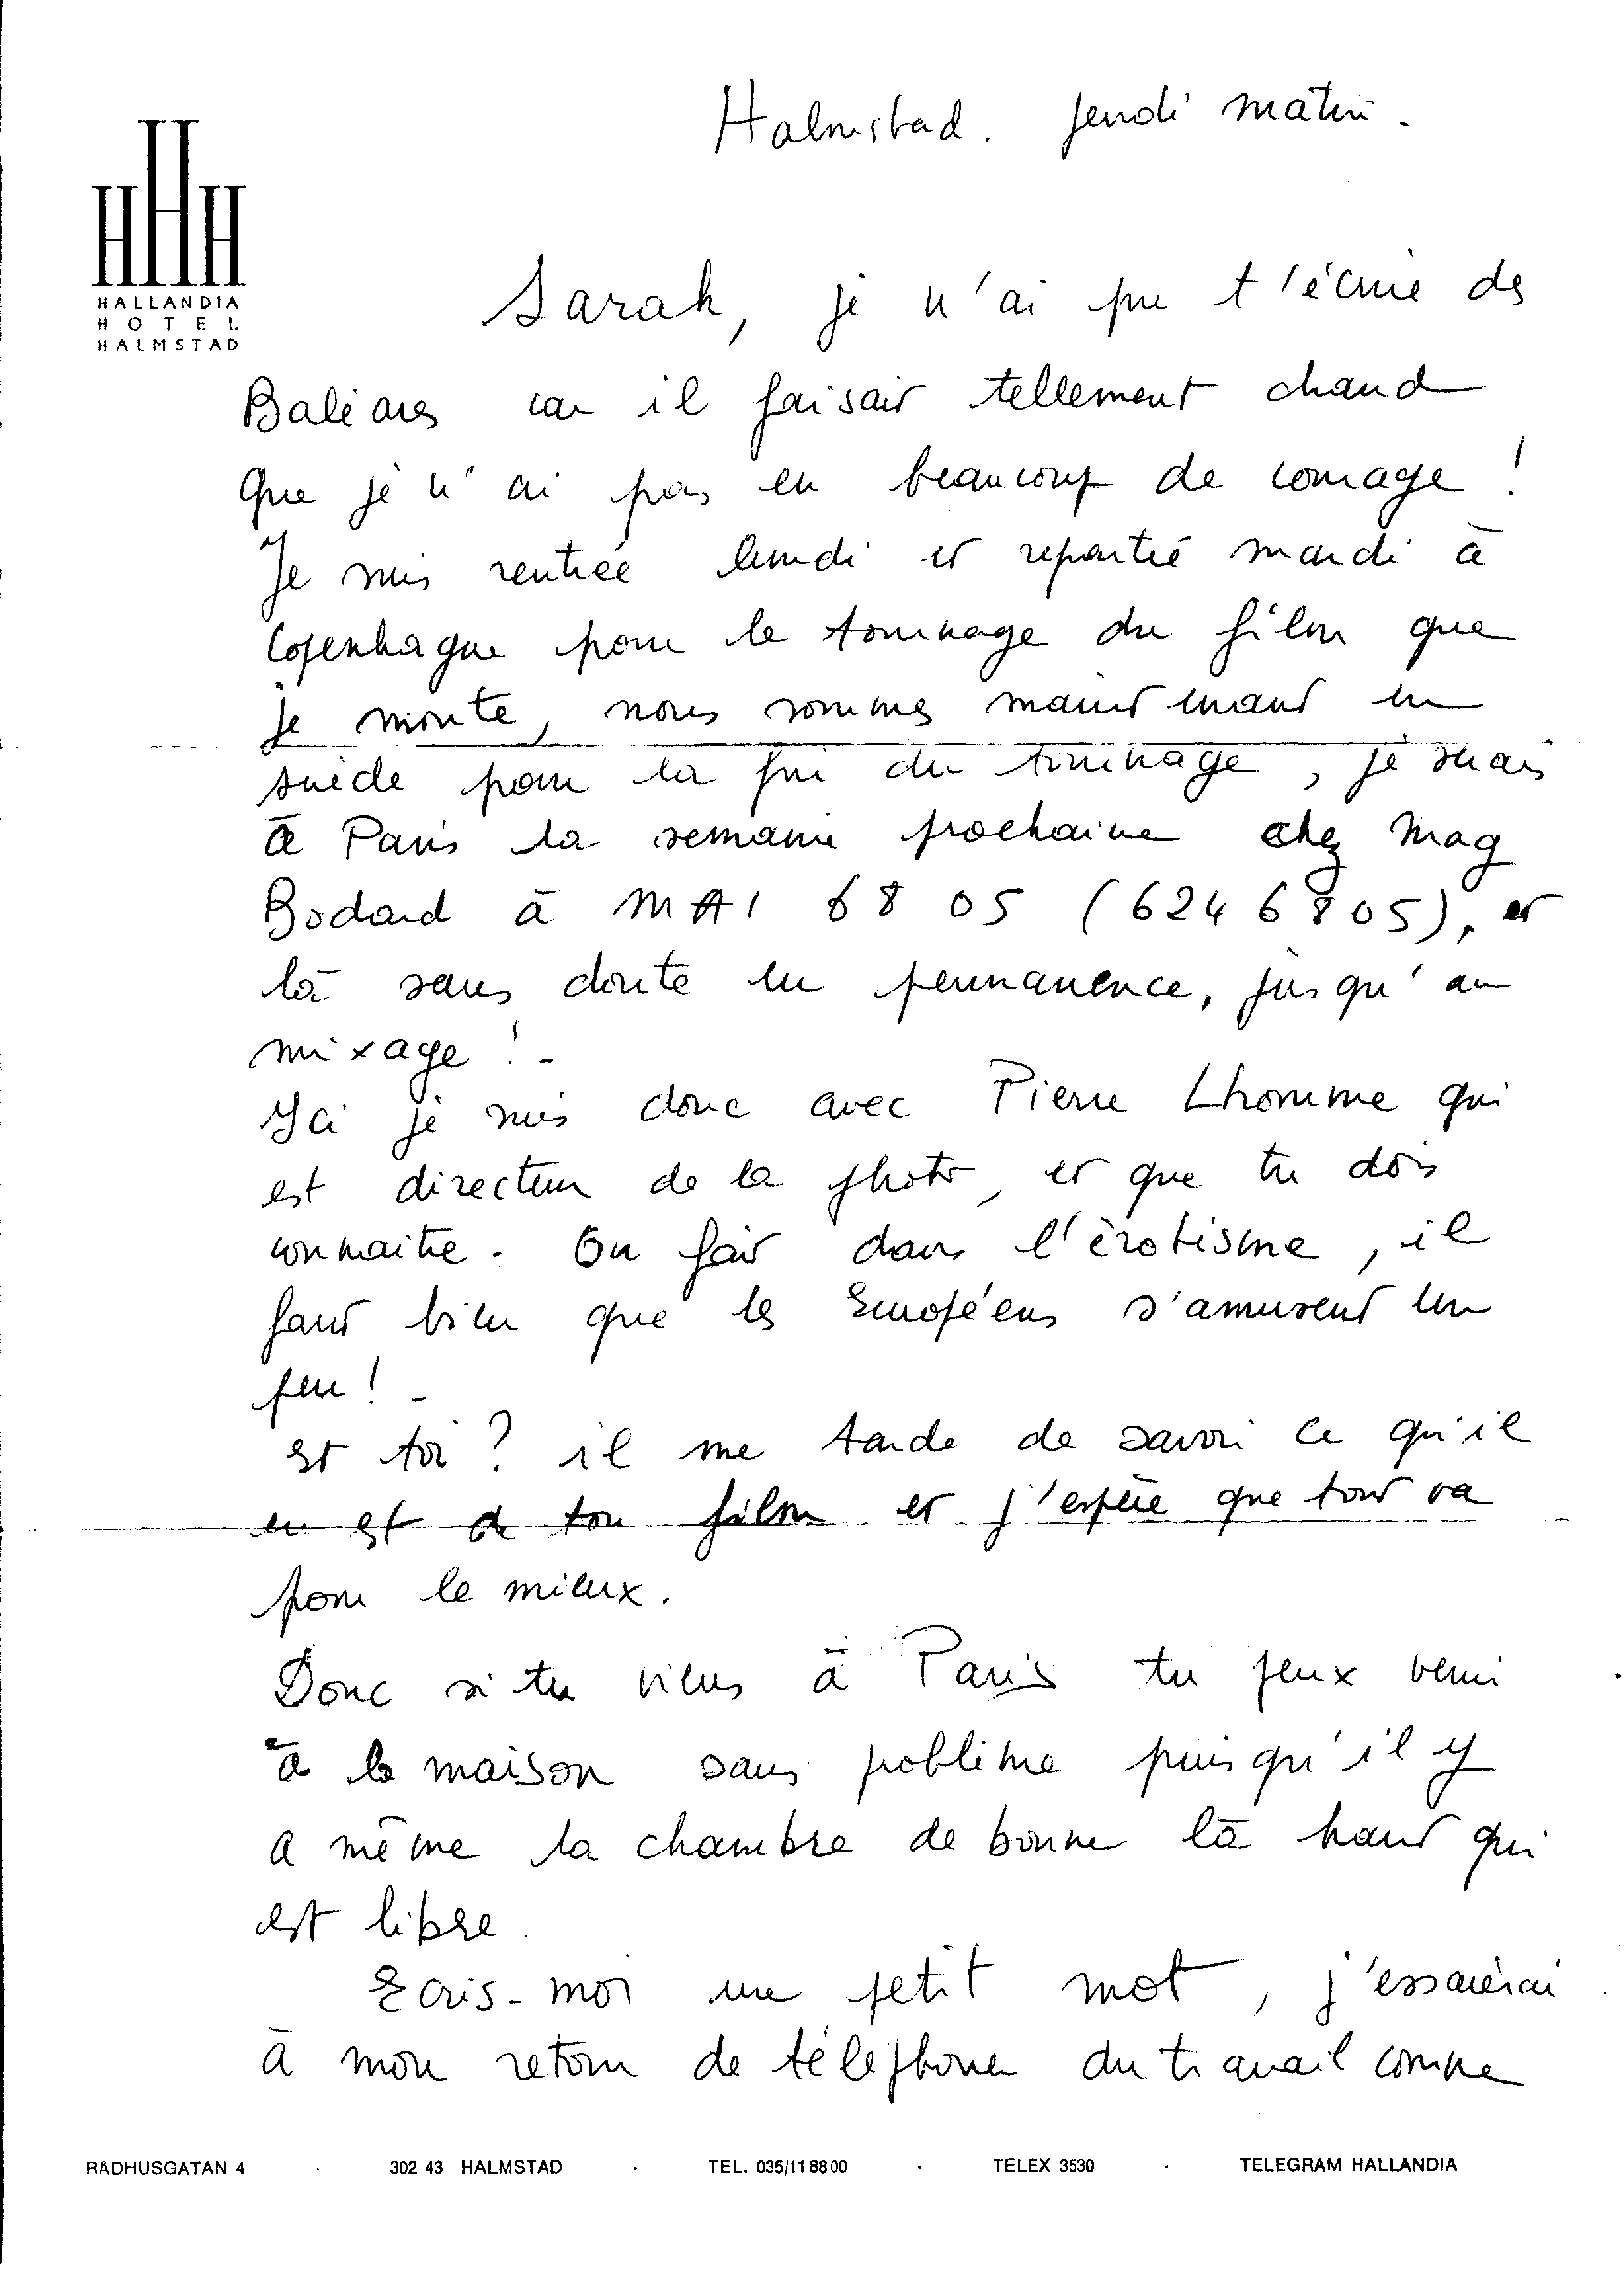 Halmstad. Jeudi matin.
HHH
HALLANDIA
HOTEL
HALMSTAD
Sarah, je n'ai pu t'écrire des
Baléares car il faisait tellement chaud
que je n'ai pas eu beaucoup de courage !
Je suis rentrée lundi et repartie mardi à
Copenhague pour le tournage du film que
je monte, nous sommes maintenant en
suède pour la fin du tournage, je serais
à Paris la semaine prochaine chez Mag
Bodard à MAI 68 05 (624 6805), et
là sans doute en permanence, jusqu'au
mixage ! -
Ici je suis donc avec Pierre Lhomme qui
est directeur de la photo, et que tu dois
connaitre. On fait dans l'érotisme, il
faut bien que les Européens s'amusent un
peu ! -
et toi ? il me tarde de savoir ce qu'il
en est de ton film et j'espère que tout va
pour le mieux.
Donc si tu viens à Paris tu peux venir
à la maison sans problème puisqu'il y
a même la chambre de bonne là haut qui
est libre.
Ecris-moi un petit mot, j'essaierai
à mon retour de téléphoner du travail comme
RÅDHUSGATAN 4 · 302 43 HALMSTAD · TEL. 035/11 88 00 · TELEX 3530 · TELEGRAM HALLANDIA